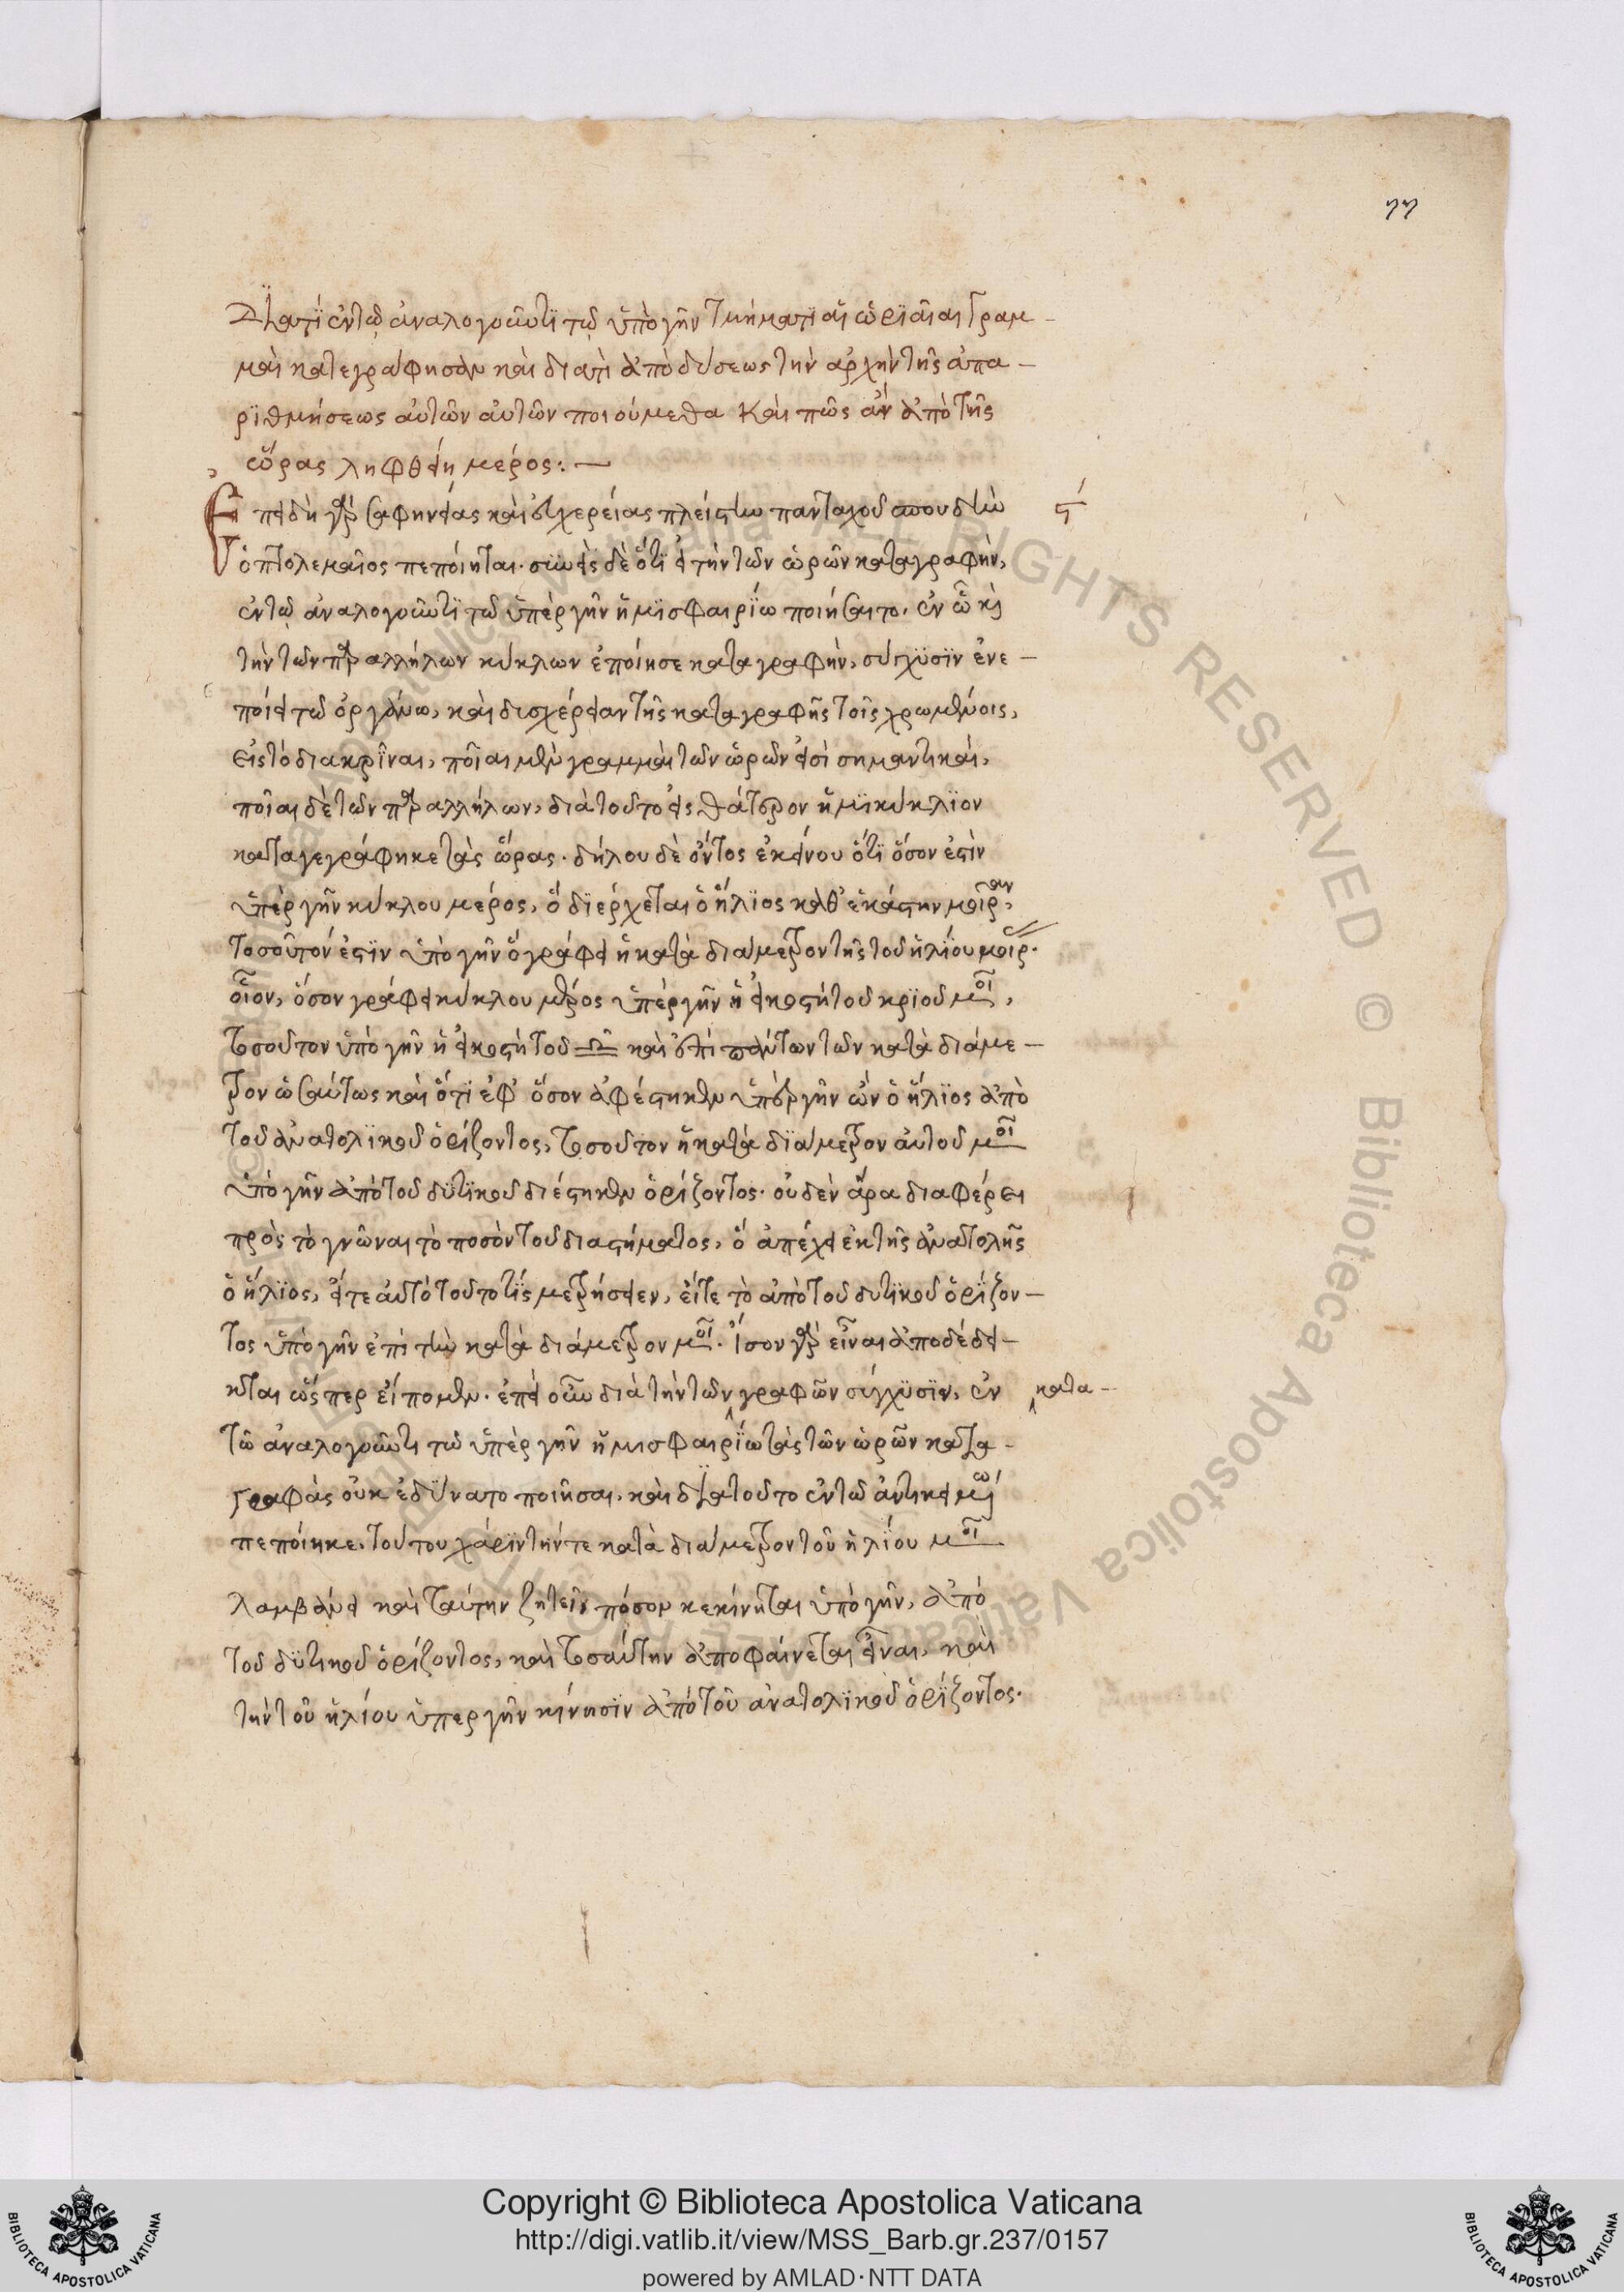 77
Διατί ἐν τῷ ἀναλογοῦντι τῷ ὑπὸ γῆν τμήματι αἱ ὡριαῖαι γραμ-
μαὶ κατεγράφησαν καὶ διατί ἀπὸ δύσεως τὴν ἀρχὴν τῆς ἀπα-
ριθμήσεως αὐτῶν αὐτῶν ποιούμεθα καὶ πῶς ἂν ἀπὸ τῆς
ὥρας ληφθείη μέρος:—
Ἐπειδὴ γὰρ σαφηνείας καὶ εὐχερείας πλείστην πανταχοῦ σπουδὴν ϛ
ὁ πτολεμαῖος πεποίηται· συνεὶς δὲ ὅτι εἰ τὴν τῶν ὡρῶν καταγραφὴν,
ἐν τῷ ἀναλογοῦντι τῷ ὑπὲρ γῆν ἡμισφαιρίῳ ποιήσαιτο, ἐν ᾧ κὶ
τὴν τῶν παραλλήλων κύκλων ἐποίησε καταγραφὴν, σύγχυσιν ἐνε-
ποίει τῷ ὀργάνῳ, καὶ δυσχέρειαν τῆς καταγραφῆς τοῖς χρωμένοις,
εἰς τὸ διακρῖναι, ποῖαι μὲν γραμμαὶ τῶν ὡρῶν εἰσὶ σημαντικαὶ,
ποῖαι δὲ τῶν παραλλήλων, διὰ τοῦτο εἰς θάτερον ἡμικύκλιον
καταγεγράφηκε τὰς ὥρας· δήλου δὲ ὄντος ἐκείνου ὅτι ὅσον ἐστὶν
ὑπὲρ γῆν κύκλου μέρος, ὃ διέρχεται ὁ ἥλιος καθ' ἑκάστην μοῖραν,
τοσοῦτόν ἐστιν ὑπὸ γῆν ὃ γράφει ἡ κατὰ διάμετρον τῆς τοῦ ἡλίου μοίρ.
οἷον, ὅσον γράφει κύκλου μέρος ὑπὲρ γῆν ἡ εἰκοστὴ τοῦ κριοῦ μοῖ,
τοσοῦτον ὑπὸ γῆν ἡ εἰκοστὴ τοῦ ♎ καὶ ἐπὶ πάντων τῶν κατὰ διάμε-
τρον ὡσαύτως καὶ ὅτι ἐφ' ὅσον ἀφέστηκεν ὑπὲρ γῆν ὢν ὁ ἥλιος ἀπὸ
τοῦ ἀνατολικοῦ ὁρίζοντος, τοσοῦτον ἡ κατὰ διάμετρον αὐτοῦ μοῖ
ὑπὸ γῆν ἀπὸ τοῦ δυτικοῦ διέστηκεν ὁρίζοντος· οὐδὲν ἄρα διαφέρει
πρὸς τὸ γνῶναι τὸ ποσὸν τοῦ διαστήματος, ὃ ἀπέχει ἐκ τῆς ἀνατολῆς
ὁ ἥλιος, εἴτε αὐτὸ τοῦτο τὶς μετρήσειεν, εἴτε τὸ ἀπὸ τοῦ δυτικοῦ ὁρίζον-
τος ὑπὸ γῆν ἐπὶ τὴν κατὰ διάμετρον μοῖ. ἴσον γὰρ εἶναι ἀποδέδει-
κται ὥσπερ εἴπομεν· ἐπεὶ οὖν διὰ τὴν τῶν ⁁ γραφῶν σύγχυσιν, ἐν ⁁ κατα-
τῷ ἀναλογοῦντι τῷ ὑπὲρ γῆν ἡμισφαιρίῳ τὰς τῶν ὡρῶν κατα-
γραφὰς οὐκ ἐδύνατο ποιῆσαι, καὶ διὰ τοῦτο ἐν τῷ ἀντικειμένῳ
πεποίηκε. τούτου χάριν τήν τε κατὰ διάμετρον τοῦ ἡλίου μοῖ
λαμβάνει καὶ ταύτην ζητεῖν πόσον κεκίνηται ὑπὸ γῆν, ἀπὸ
τοῦ δυτικοῦ ὁρίζοντος, καὶ τοσαύτην ἀποφαίνεται εἶναι, καὶ
τὴν τοῦ ἡλίου ὑπὲρ γῆν κίνησιν ἀπὸ τοῦ ἀνατολικοῦ ὁρίζοντος.
© Biblioteca Apostolica Vaticana ALL RIGHTS RESERVED © Biblioteca Apostolica Vaticana ALL RIGHTS RESERVED
BIBLIOTECA APOSTOLICA VATICANA
Copyright © Biblioteca Apostolica Vaticana
http://digi.vatlib.it/view/MSS_Barb.gr.237/0157
powered by AMLAD·NTT DATA
BIBLIOTECA APOSTOLICA VATICANA